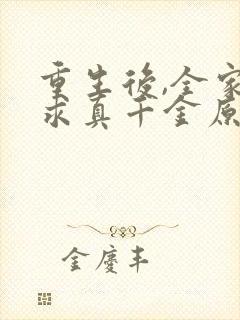 重生後,全家
求真千金原
金慶丰